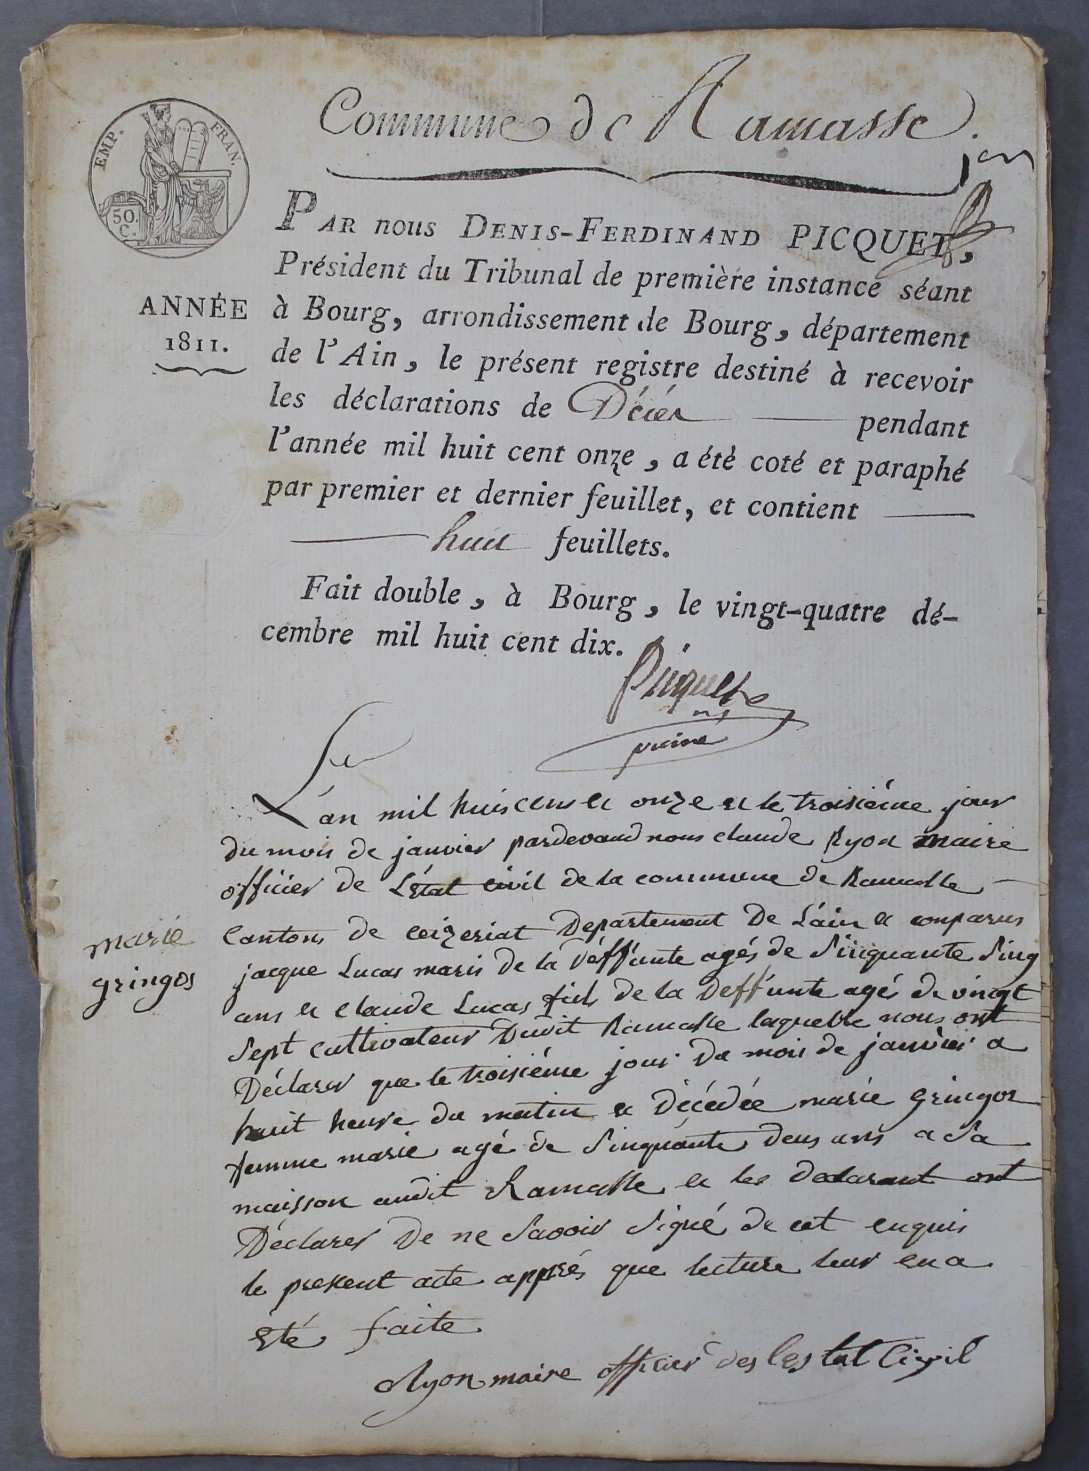 Commune de Ramasse.
EMP. FRAN.
50.
C.
PAR nous DENIS-FERDINAND PICQUET,
Président du Tribunal de première instance séant
ANNÉE
1811.
à Bourg, arrondissement de Bourg, département
de l'Ain, le présent registre destiné à recevoir
les déclarations de Décès pendant
l'année mil huit cent onze, a été coté et paraphé
par premier et dernier feuillet, et contient
huit feuillets.
Fait double, à Bourg, le vingt-quatre dé-
cembre mil huit cent dix.
Picquet
L'an mil huis cens et onze et le troisiéme jour
du mois de janvier pardevand nous claude Ryon maire
officier de L'état civil de la commune de Ramasse
Cantons de ceizeriat Departement de L'ain et comparus
marie
gringos
jacque Lucas maris de la deffunte agés de Sinquante Sinq
ans et claude Lucas fils de la deffunte agés de vingt
Sept cultivateur Dudit Ramasse laquelle nous ont
Déclarer que le troisiéme jour du mois de janvier a
huit heure du matin et Décédée marie gringos
femme marie agé de Sinquante deus ans a Sa
maisson audit Ramasse et les declarant ont
Déclarer De ne Savoir Signé de cet enquis
le present acte apprés que lecture leur en a
Eté faite
Ryon maire officier des lestat Civil